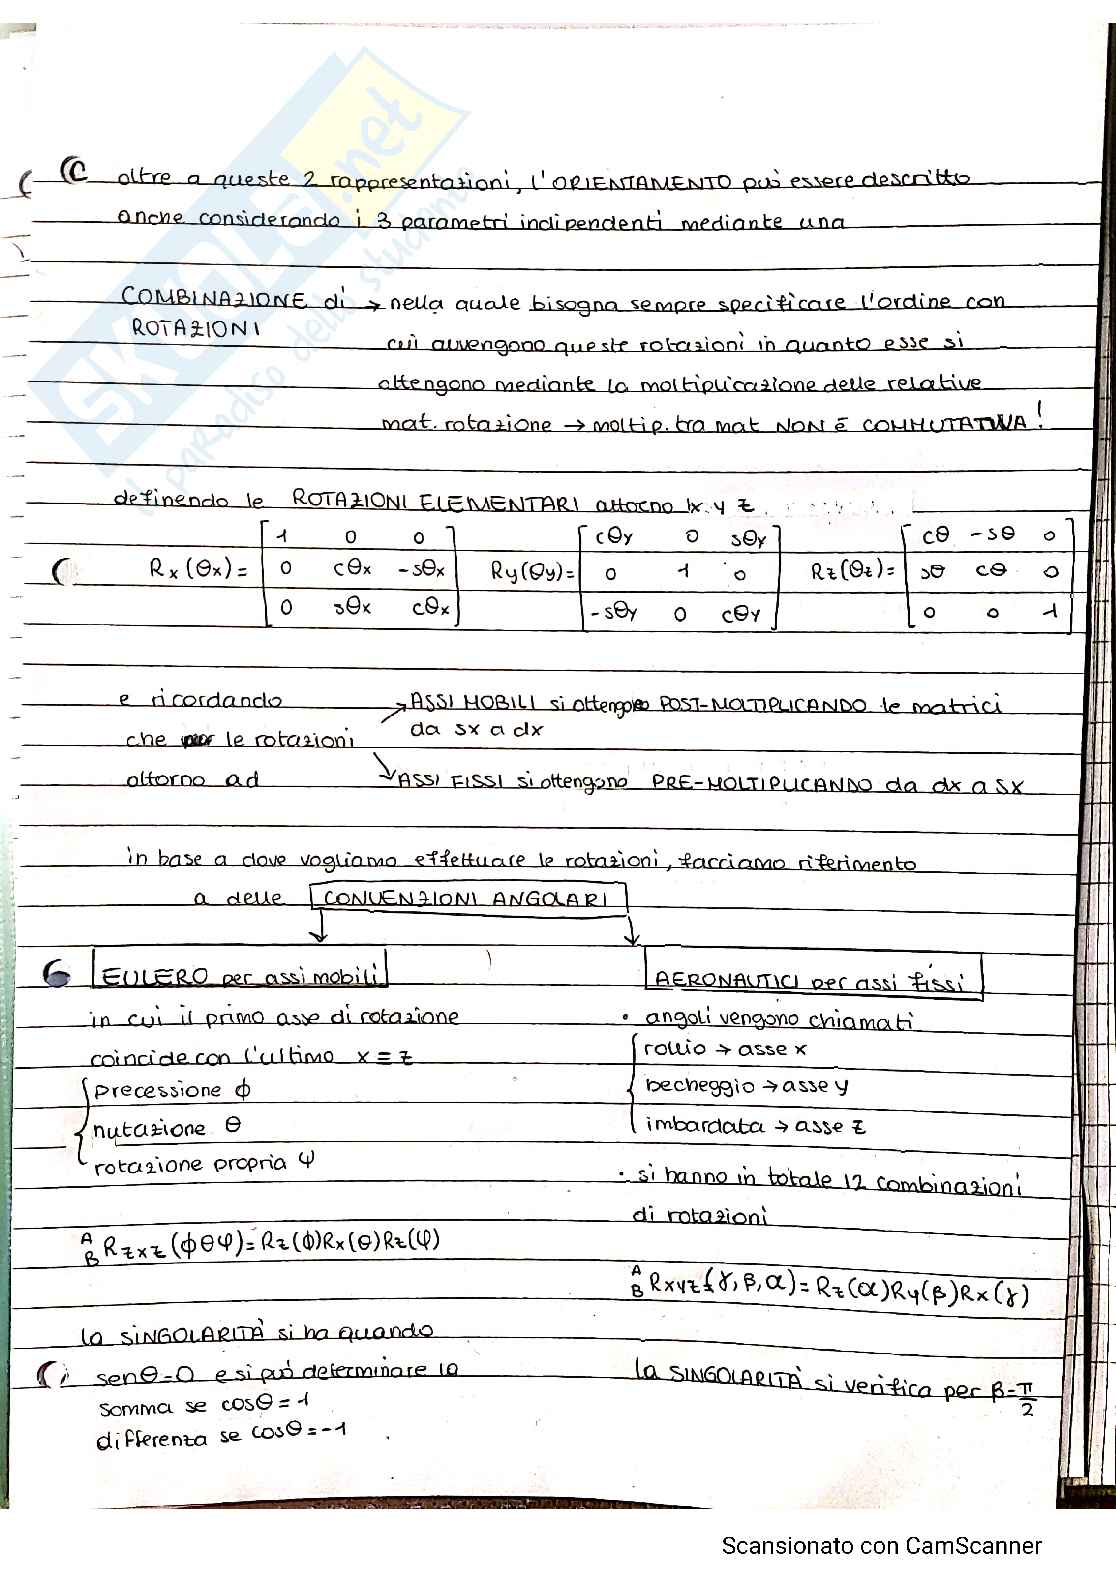 oltre a queste 2 rappresentazioni, l'ORIENTAMENTO può essere descritto
anche considerando i 3 parametri indipendenti mediante una
COMBINAZIONE di → nella quale bisogna sempre specificare l'ordine con
ROTAZIONI
cui avvengono queste rotazioni in quanto esse si
ottengono mediante la moltiplicazione delle relative
mat. rotazione → moltip. tra mat NON È COMMUTATIVA!
definendo le ROTAZIONI ELEMENTARI attorno x y z
Rx(θx) = [1 0 0
0 cθx -sθx
0 sθx cθx]
Ry(θy) = [cθy 0 sθy
0 1 0
-sθy 0 cθy]
Rz(θz) = [cθ -sθ 0
sθ cθ 0
0 0 1]
e ricordando
che le rotazioni
attorno ad
→ ASSI MOBILI si ottengono POST-MOLTIPLICANDO le matrici
da sx a dx
→ ASSI FISSI si ottengono PRE-MOLTIPLICANDO da dx a sx
in base a dove vogliamo effettuare le rotazioni, facciamo riferimento
a delle CONVENZIONI ANGOLARI
EULERO per assi mobili
in cui il primo asse di rotazione
coincide con l'ultimo x = z
precessione ϕ
nutazione θ
rotazione propria ψ
A B Rzxz(ϕθψ) = Rz(ϕ)Rx(θ)Rz(ψ)
la SINGOLARITÀ si ha quando
senθ=0 e si può determinare la
somma se cosθ = 1
differenza se cosθ = -1
AERONAUTICI per assi fissi
• angoli vengono chiamati
rollio → asse x
beccheggio → asse y
imbardata → asse z
• si hanno in totale 12 combinazioni
di rotazioni
A B Rxyz(γ, β, α) = Rz(α)Ry(β)Rx(γ)
la SINGOLARITÀ si verifica per β = π/2
SKUOLA.net
il paradiso dello studente
Scansionato con CamScanner